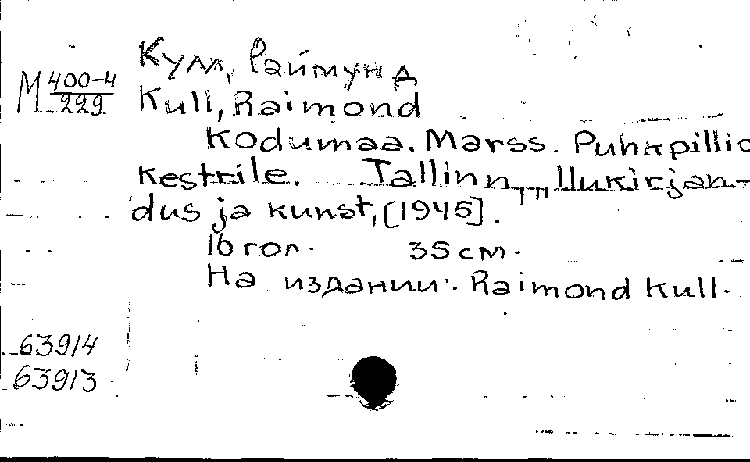 Кулл, Раймунд
М 400-4
229
Kull, Raimond
Kodumaa. Marss. Puhkpillio
kestrile. Tallinn, "Ilukirjan-
dus ja kunst, [1945].
16 гол. 35 см.
На издании: Raimond Kull.
63914
63913